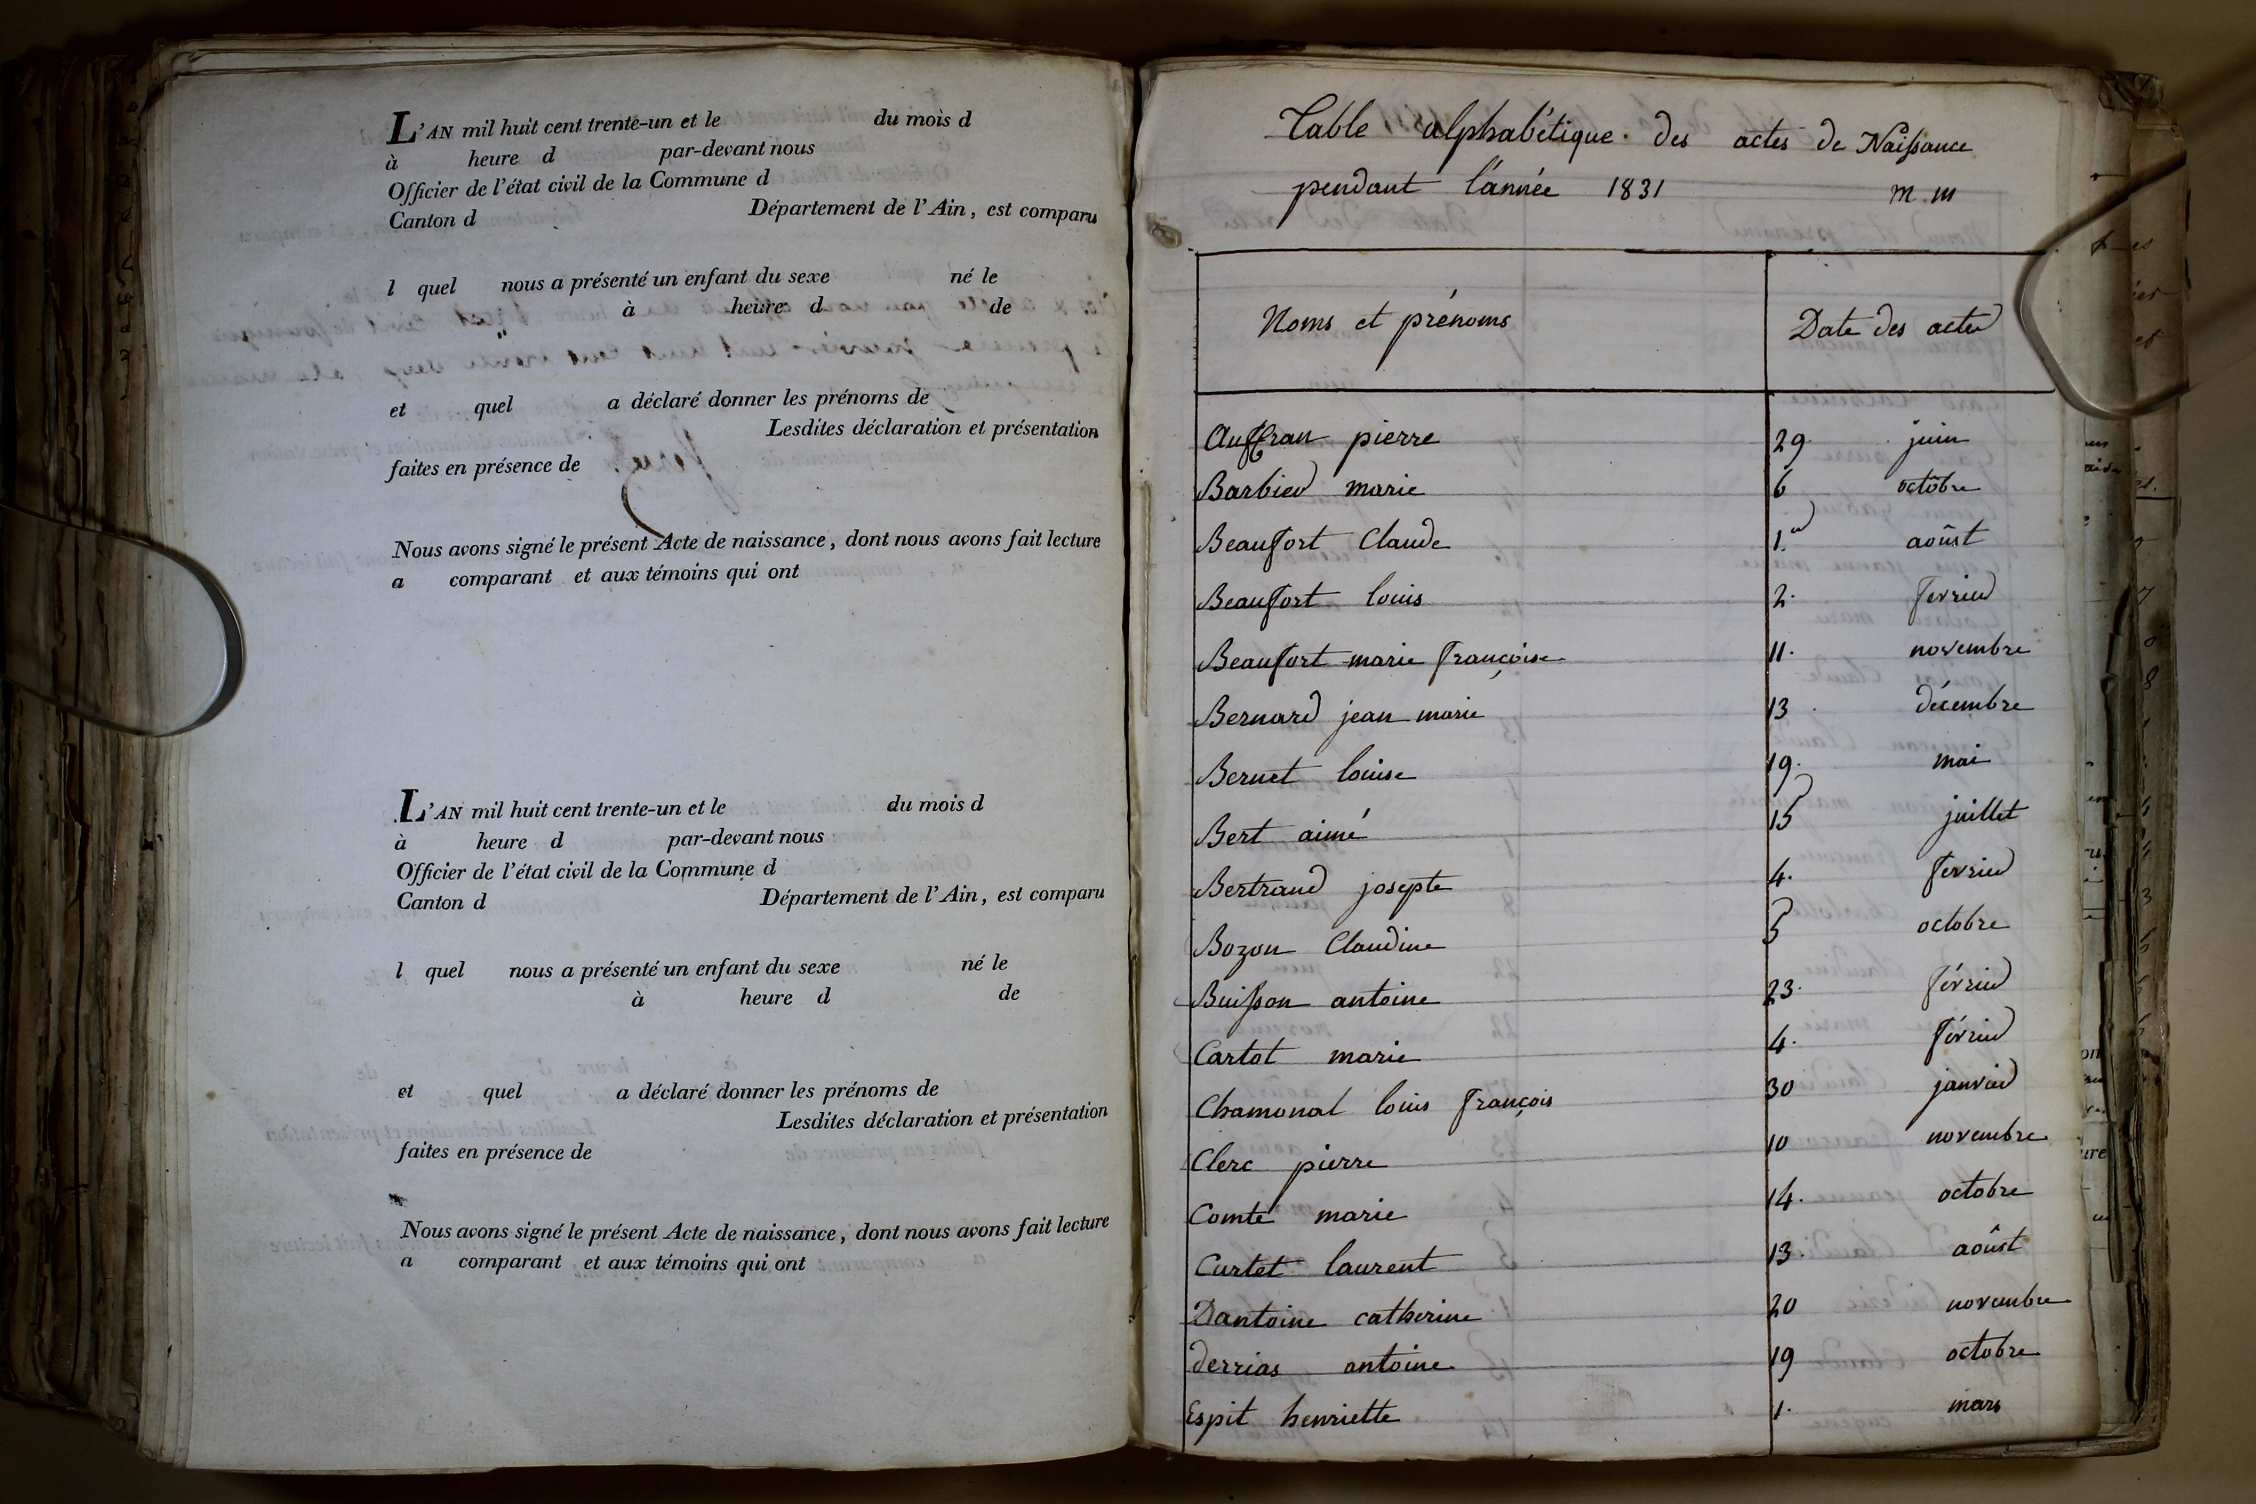 L'AN mil huit cent trente-un et le du mois d
à heure d par-devant nous
Officier de l'état civil de la Commune d
Canton d Département de l'Ain, est comparu
l quel nous a présenté un enfant du sexe né le
à heure d de
et quel a déclaré donner les prénoms de
Lesdites déclaration et présentation
faites en présence de
Nous avons signé le présent Acte de naissance, dont nous avons fait lecture
a comparant et aux témoins qui ont
L'AN mil huit cent trente-un et le du mois d
à heure d par-devant nous
Officier de l'état civil de la Commune d
Canton d Département de l'Ain, est comparu
l quel nous a présenté un enfant du sexe né le
à heure d de
et quel a déclaré donner les prénoms de
Lesdites déclaration et présentation
faites en présence de
Nous avons signé le présent Acte de naissance, dont nous avons fait lecture
a comparant et aux témoins qui ont
Table alphabétique des actes de Naissance
pendant l'année 1831
Noms et prénoms Date des actes
pierre 29 juin
Barbier marie 6 octobre
Beaufort Claude 1.er aoûst
Beaufort louis 2. fevrier
Beaufort marie françoise 11. novembre
Bernard jean marie 13 décembre
Bernet louise 19. mai
Bert aimé 15 juillet
Bertrand josepte 4. fevrier
Bozon Claudine 5 octobre
Buisson antoine 23. février
Cartot marie 4. février
Chamonal louis françois 30 janvier
Clerc pierre 10 novembre
Comte marie 14. octobre
Curtet laurent 13. aoûst
Dantoine catherine 20 novembre
derrias antoine 19 octobre
Espit henriette 1. mars